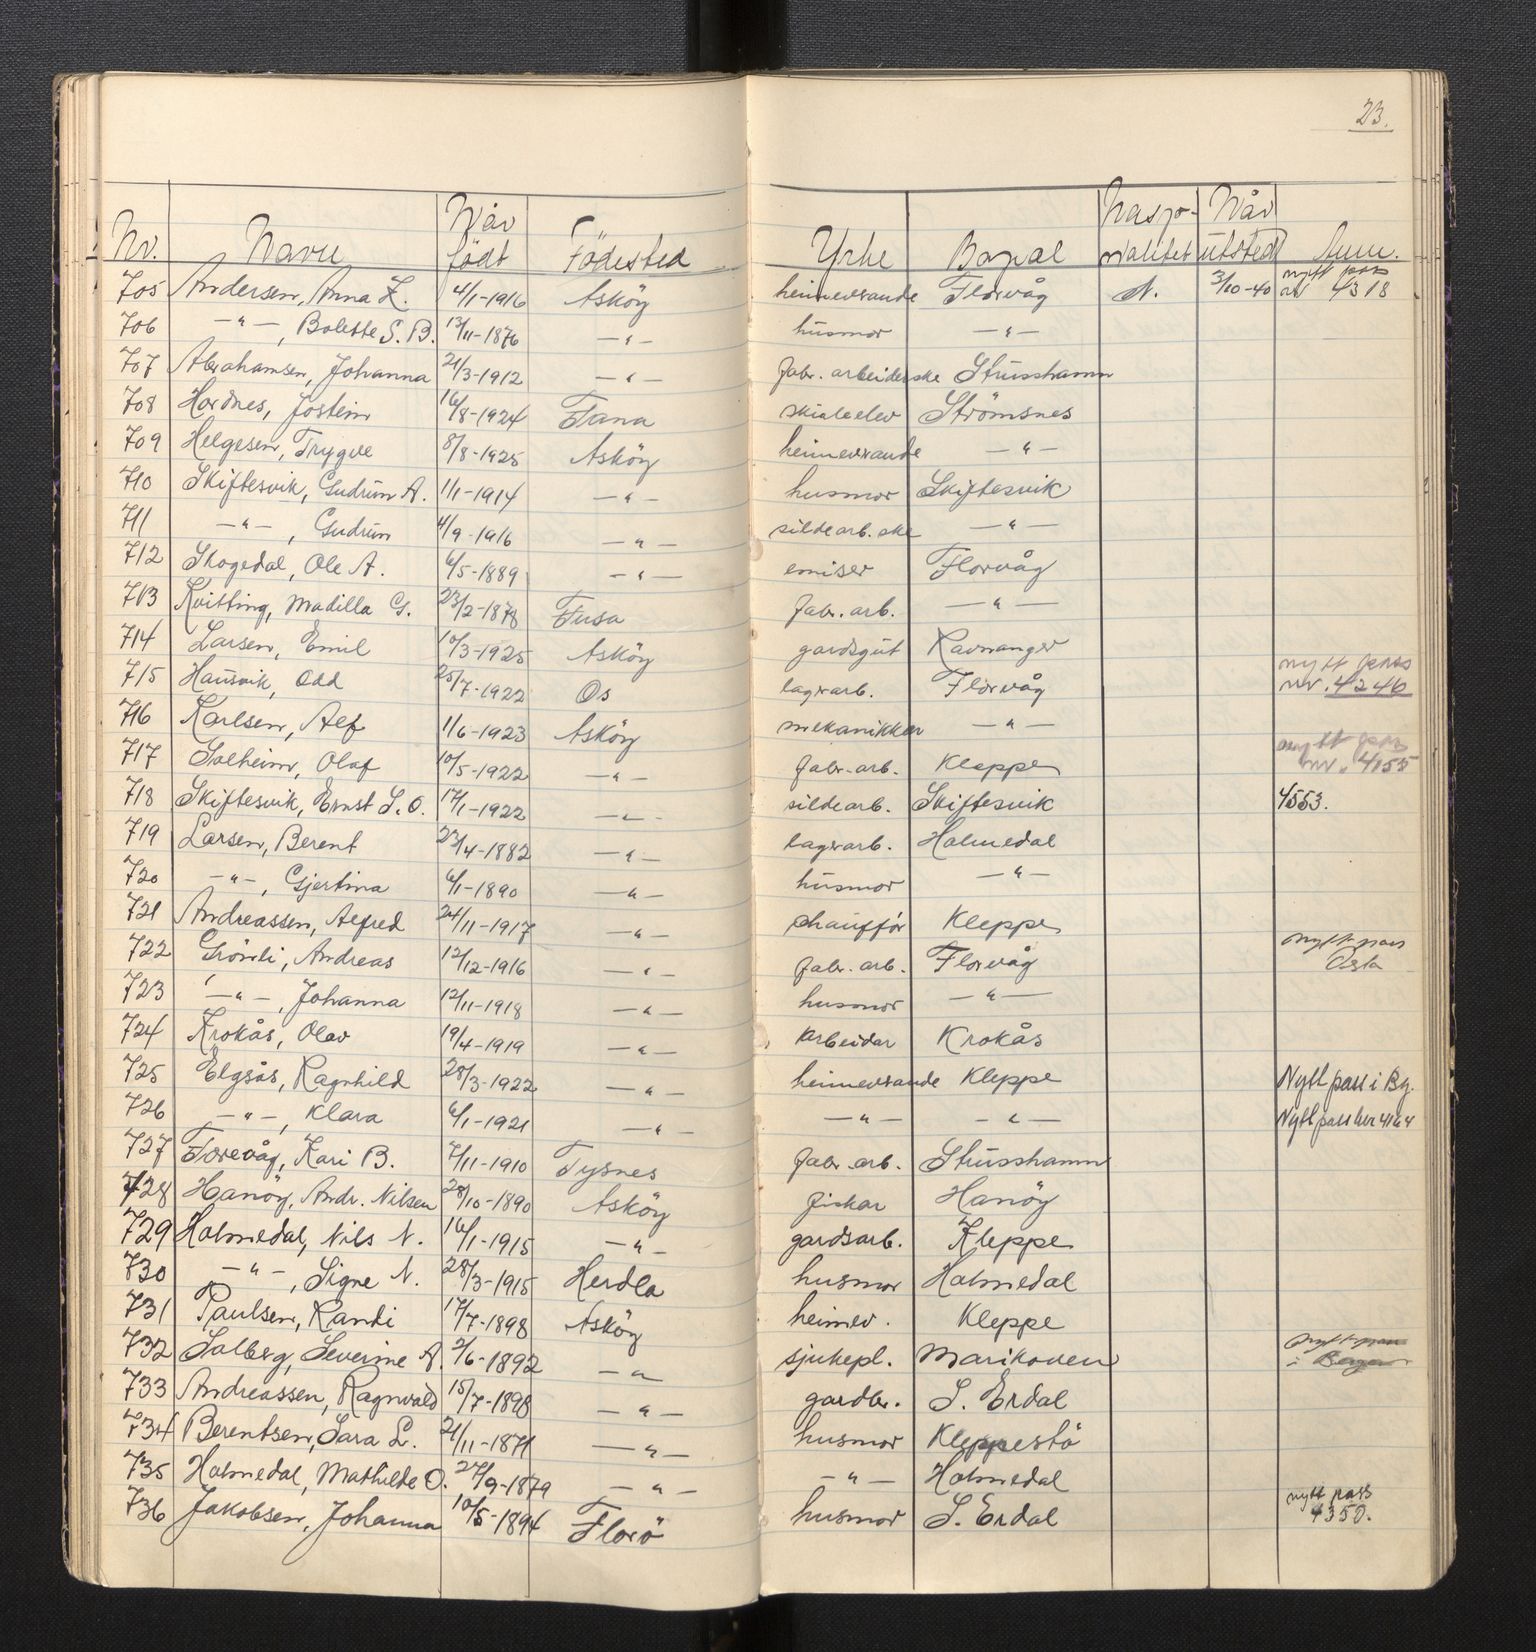 23.
Nr. Navn Når födt Födested Yrke Bopæl Nasjonalitet Når utsted Anm.
705 Andersen, Anna L. 4/1-1916 Asköy heimeverande Florvåg N. 3/10-40 nytt pass nr 4318
706 —"—, Bolette S. B. 13/11-1876 —"— husmor —"—
707 Abrahamsen, Johanna 21/3-1912 —"— fabr. arbeiderske Strusshamn
708 Hordnes, Jostein 16/8-1924 Fana skuleelev Strömsnes
709 Helgesen, Trygve 8/8-1925 Asköy heimeverande —"—
710 Skiftesvik, Gudrun A. 1/1-1914 —"— husmor Skiftesvik
711 —"—, Gudrun 4/9-1916 —"— sildearb.ske —"—
712 Skogedal, Ole A. 6/5-1889 —"— emiser Florvåg
713 Kvitting, Madilla G. 23/2-1878 Fusa fabr. arb. —"—
714 Larsen, Emil 10/3-1925 Asköy gardsgut Ravnanger
715 Hausvik, Odd 25/7-1922 Os lagerarb. Florvåg nytt pass nr. 4246
716 Karlsen, Alf 1/6-1923 Asköy mekanikker —"—
717 Solheim, Olaf 10/5-1922 —"— fabr. arb. Kleppe nytt pass nr. 4155
718 Skiftesvik, Ernst S. O. 17/1-1922 —"— sildearb. Skiftesvik 4553.
719 Larsen, Berent 23/4-1882 —"— lagerarb. Holmedal
720 —"—, Gjertina 6/1-1890 —"— husmor —"—
721 Andreassen, Alfred 24/11-1917 —"— chauffør Kleppe
722 Grönli, Andreas 12/12-1916 —"— fabr. arb. Florvåg nytt pass
723 —"—, Johanna 12/11-1918 —"— husmor —"—
724 Krokås, Olav 19/4-1919 —"— arbeidar Krokås
725 Elgsås, Ragnhild 28/3-1922 —"— heimeverande Kleppe Nytt pass i Bg.
726 —"—, Klara 6/1-1921 —"— —"— —"— Nytt pass her 4164
727 Torevåg, Kari B. 7/11-1910 Tysnes fabr. arb. Strusshamn
728 Hanöy, Andr. Nilsen 28/10-1890 Asköy fiskar Hanöy
729 Holmedal, Nils N. 16/1-1915 —"— gardsarb. Kleppe
730 —"—, Signe N. 28/3-1915 Herdla husmor Holmedal
731 Paulsen, Randi 17/7-1898 Asköy heimev. Kleppe
732 Solberg, Severine A. 2/6-1892 —"— sjukepl. Marikoven nytt pass i Bergen
733 Andreassen, Ragnvald 15/7-1898 —"— gardbr. S. Erdal
734 Berentsen, Sara L. 21/11-1871 —"— husmor Kleppestö
735 Holmedal, Mathilde O. 27/9-1879 —"— —"— Holmedal
736 Jakobsen, Johanna 10/5-1894 Florö husmor S. Erdal nytt pass 4350.